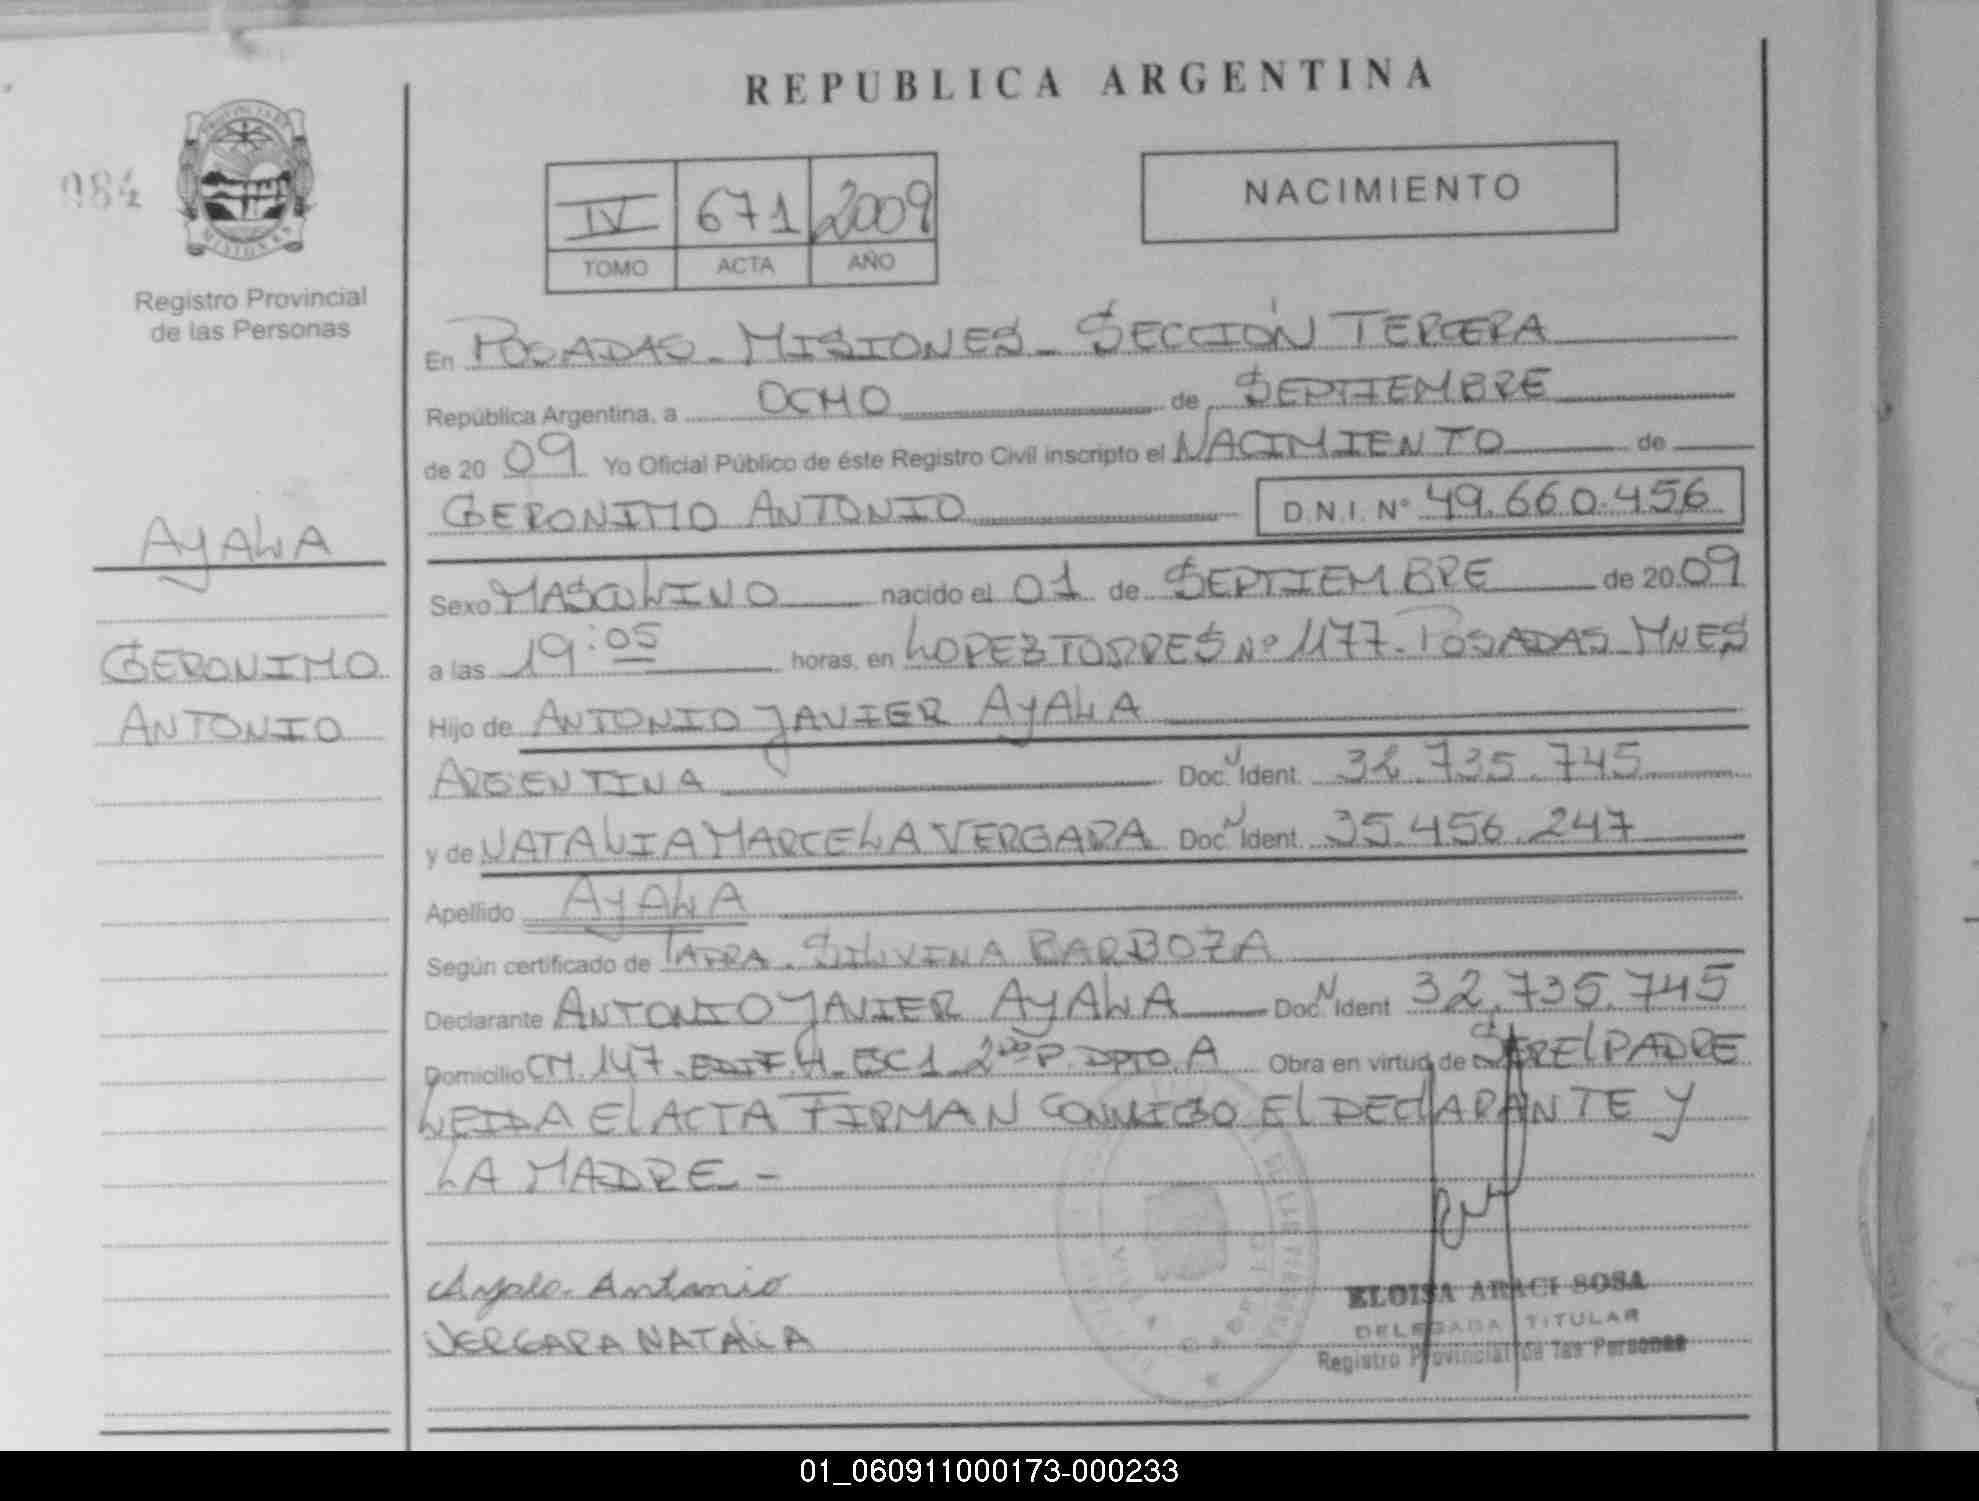 REPUBLICA ARGENTINA
084
PROVINCIA DE
MISIONES
Registro Provincial
de las Personas
IV 671 2009
TOMO ACTA AÑO
NACIMIENTO
En POSADAS - MISIONES - SECCIÓN TERCERA
República Argentina, a OCHO de SEPTIEMBRE
de 20 09 Yo Oficial Público de éste Registro Civil inscripto el NACIMIENTO de
GERONIMO ANTONIO D.N.I. Nº 49.660.456
AYALA
GERONIMO
ANTONIO
Sexo MASCULINO nacido el 01 de SEPTIEMBRE de 20 09
a las 19:05 horas, en LOPEZ TORRES Nº 1177 - POSADAS - MNES
Hijo de ANTONIO JAVIER AYALA
ARGENTINA Doc. N Ident. 32.735.745
y de NATALIA MARCELA VERGARA Doc. N Ident. 35.456.247
Apellido AYALA
Según certificado de SILVINA BARBOZA
Declarante ANTONIO JAVIER AYALA Doc. N Ident 32.735.745
Domicilio CH. 147 - EDIF. H - ESC 1 - 2do P. DPTO. A Obra en virtud de SER EL PADRE
LEIDA El ACTA FIRMAN CONMIGO El DECLARANTE Y
LA MADRE -
Ayala Antonio
VERGARA NATALIA
ELOISA ARACI SOSA
DELEGADA TITULAR
Registro Provincial de las Personas
01_060911000173-000233